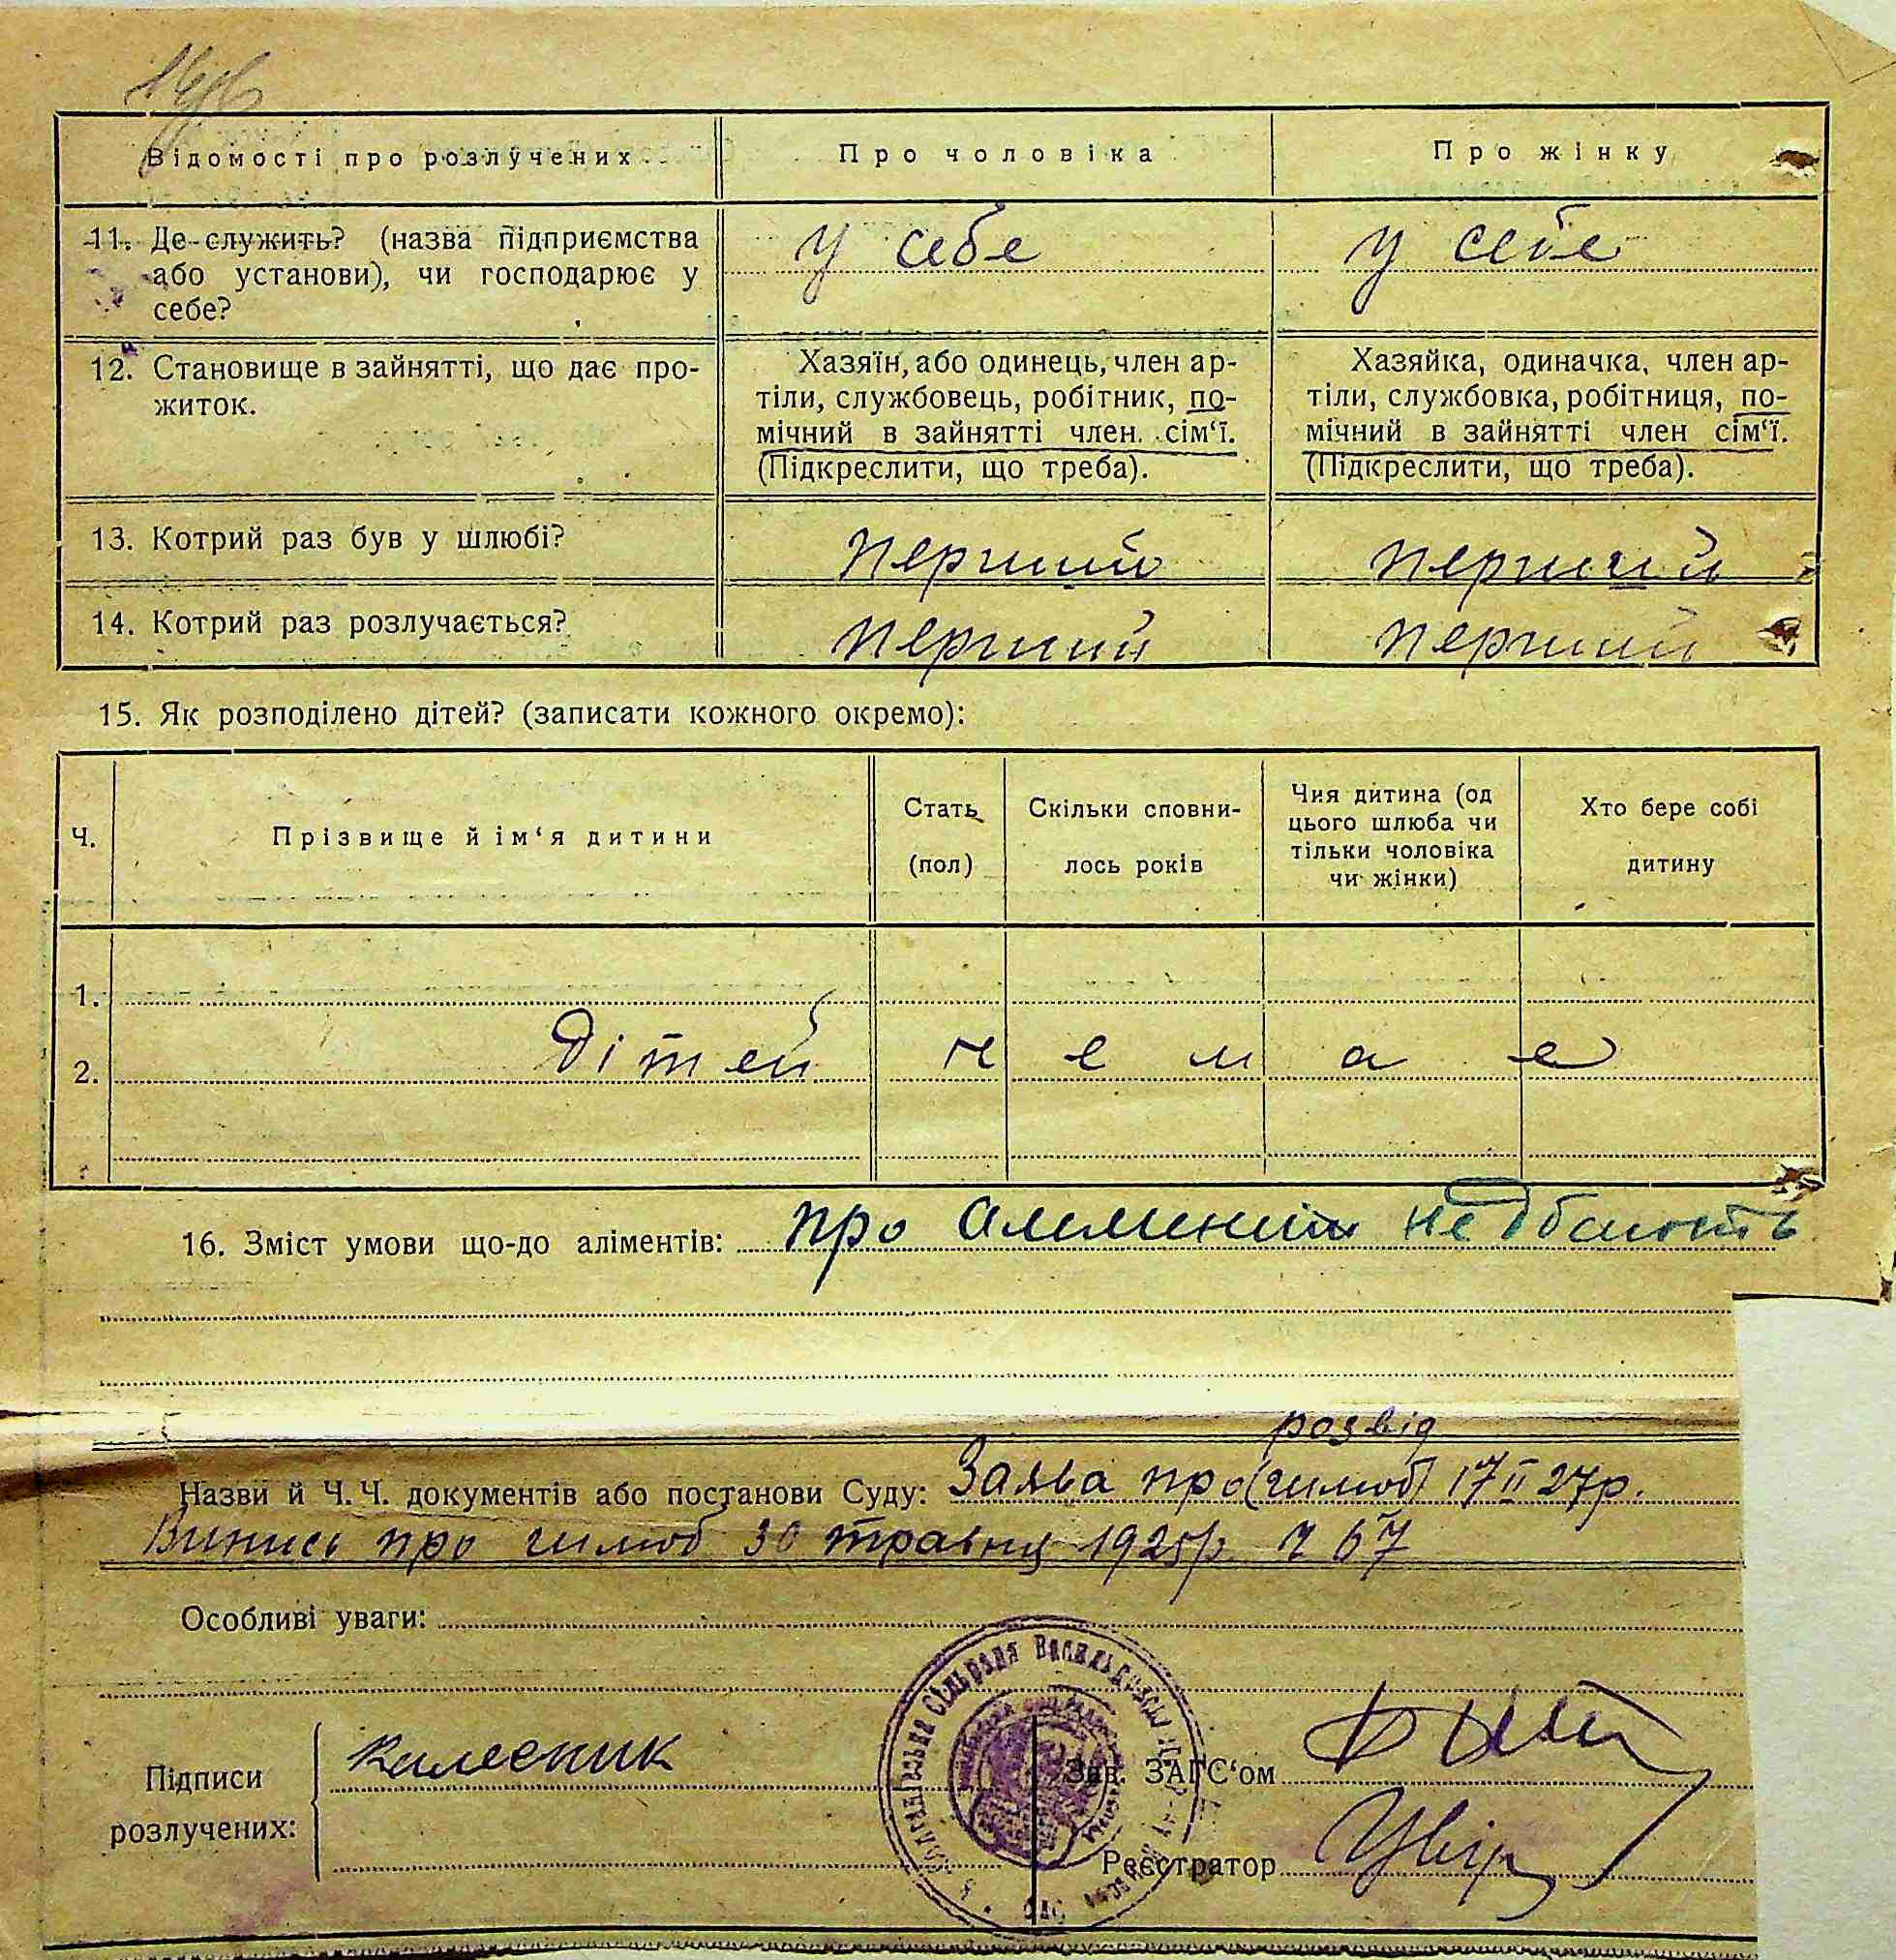 146
Відомості про розлучених
Про чоловіка
Про жінку
11. Де служить? (назва підприємства
або установи), чи господарює у
себе?
у себе
у себе
12. Становище в зайнятті, що дає про-
житок.
Хазяїн, або одинець, член ар-
тіли, службовець, робітник, по-
мічний в зайнятті член сім‘ї.
(Підкреслити, що треба).
Хазяйка, одиначка, член ар-
тіли, службовка, робітниця, по-
мічний в зайнятті член сім‘ї.
(Підкреслити, що треба).
13. Котрий раз був у шлюбі?
перший
перший
14. Котрий раз розлучається?
перший
перший
15. Як розподілено дітей? (записати кожного окремо):
Ч.
Прізвище й ім‘я дитини
Стать
(пол)
Скільки сповни-
лось років
Чия дитина (од
цього шлюба чи
тільки чоловіка
чи жінки)
Хто бере собі
дитину
1.
2. дітей немає
16. Зміст умови що-до аліментів: про алименти не дбають
розвід
Назви й Ч. Ч. документів або постанови Суду: Заява про (шлюб) 17 II 27р.
Випись про шлюб 30 травня 1925р. ч 67
Особливі уваги:
Підписи
розлучених:
Колесник
Зав. ЗАГС‘ом
Реєстратор
сільрада